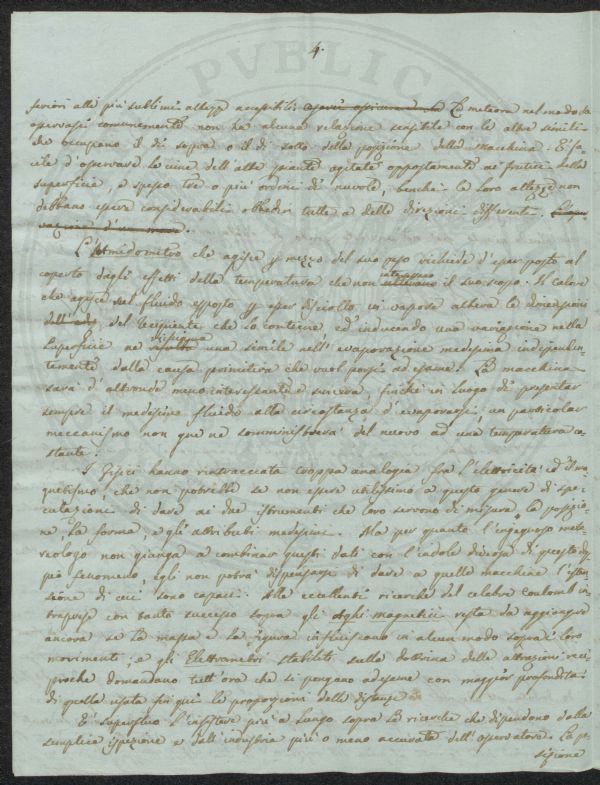 4.
feriori alle più sublimi altezze accessibili La meteora nel modo da
osservarsi comunemente non ha alcuna relazione sensibile con le altre simili
che occupano il di sopra o il di sotto della posizione della Macchina. È fa-
cile d'osservare le cime dell'alte piante agitate oppostamente ai frutici della
superficie, e spesso tre o più ordini di nuvole, benchè le loro altezze non
debbano essere considerabili ubbidir tutte a delle direzioni differenti.
L'Atmidometro che agisce p mezzo del suo peso richiede d'esser posto al
coperto dagli effetti della temperatura che non intressano il suo scopo. Il calore
che agisce sul fluido esposto p esser disciolto in vapore altera le dimensioni
del recipiente che lo contiene, ed inducendo una variazione nella
superficie ne una simile nell'evaporazione medesima indipenden-
temente dalla causa primitiva che vuol porsi ad esame. La macchina
sarà d'altronde meno interessante e sincera, finchè in luogo di presentar
sempre il medesimo fluido alla circostanza d'evaporarsi, un particolar
meccanismo non que ne somministrerà del nuovo ad una temperatura co-
stante.
I Fisici hanno rintracciata troppa analogia fra l'elettricità ed il ma-
gnetismo, che non potrebbe se non essere utilissimo a questo genere di spe-
culazioni di dare ai due istrumenti che loro servono di misura, la posizio-
ne, la forma, e gli attributi medesimi. Ma per quanto l'ingegnoso mete-
reologo non giunga a combinar questi dati con l'indole diversa di questo dop-
pio fenomeno, egli non potrà dispensarsi di dare a quelle macchine l'esten-
sione di cui sono capaci. Alle eccellenti ricerche del celebre Coulomb in-
traprese con tanto successo sopra gli Aghi magnetici resta da aggiungere
ancora se la massa e la figura influiscono in alcun modo sopra i loro
movimenti; e gli Elettrometri stabiliti sulla dottrina delle attrazioni reci-
proche domandano tutt'ora che si pongano ad esame con maggior profondità
di quella usata fin quì le proporzioni delle distanze.
È superfluo l'insistere più a lungo sopra le ricerche che dipendono dalla
semplice ispezione e dall'industria più o meno accurata dell'osservatore. La po-
sizione